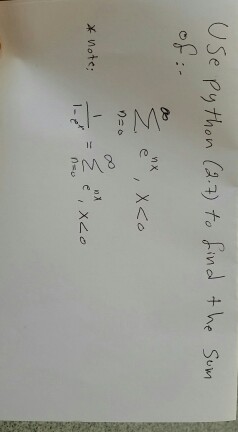 Use python (2.7) to find the sum
of :-
∞
∑ e^{nx} , x<0
n=0
* note:
1/(1-e^x) = ∑_{n=0}^{∞} e^{nx} , x<0